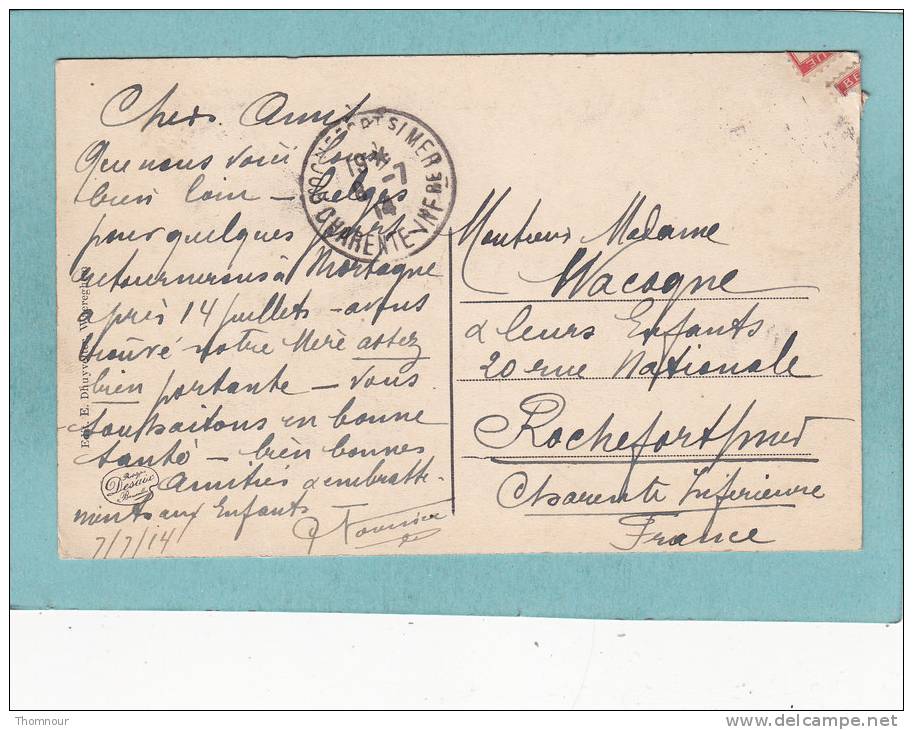 Chers Amis
Que nous voici tous
bien loin – belges
pour quelques jours
retournerons à Mortagne
après 14 juillets – avons
trouvé votre Mère assez
bien portante – vous
souhaitons en bonne
santé – bien bonnes
Amitiés & embrasse-
ments aux Enfants
7/7/14
ROCHEFORT S/MER
19 * -7
14
CHARENTE-INFRE
Edit. E. Dhuyvetter, Waereghem
Desaix
UE
BE
Monsieur Madame
Wacogne
& leurs Enfants
20 rue Nationale
Rochefort s/mer
Charente Inférieure
France
Thomnour
www.delcampe.net